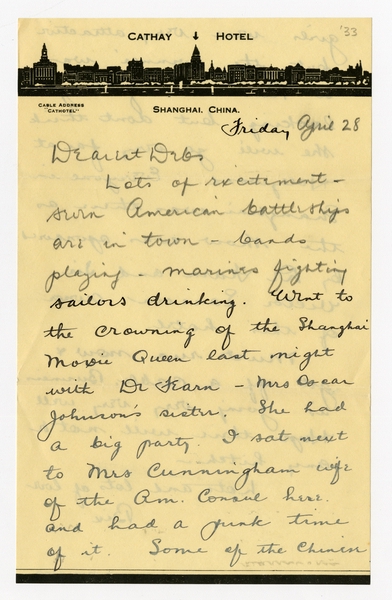 '33
CATHAY HOTEL
CABLE ADDRESS
"CATHOTEL"
SHANGHAI, CHINA.
Friday April 28
Dearest Debs
Lots of excitement –
seven American battleships
are in town – bands
playing – marines fighting
sailors drinking. Went to
the crowning of the Shanghai
Movie Queen last night
with Dr Fearn – Mrs Oscar
Johnson's sister. She had
a big party. I sat next
to Mrs Cunningham wife
of the Am. Consul here.
and had a punk time
of it. Some of the Chinese